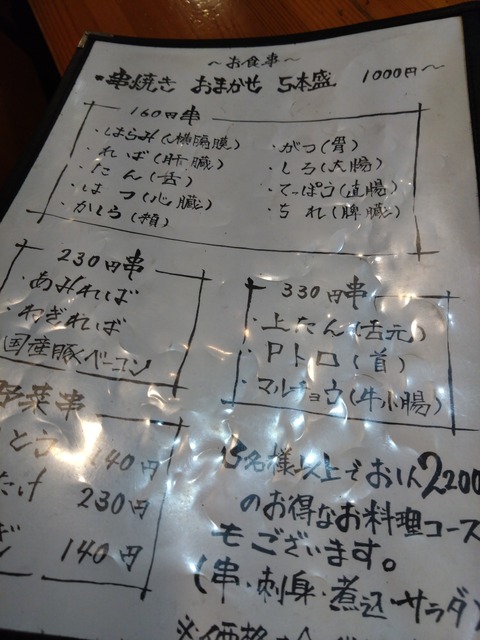 ～お食事～
・串焼き おまかせ 5本盛 1000円～
160円串
・はらみ(横隔膜)
・ればー(肝臓)
・たん(舌)
・はつ(心臓)
・かしら(頬)
・がつ(胃)
・しろ(大腸)
・てっぽう(直腸)
・ちれ(脾臓)
230円串
・あみればー
・ねぎればー
国産豚ベーコン
330円串
・上たん(舌元)
・Pトロ(首)
・マルチョウ(牛小腸)
野菜串
140円
たけ 230円
140円
5名様以上でお1人2200
のお得なお料理コース
もございます。
(串・刺身・煮込・サラダ)
※価格